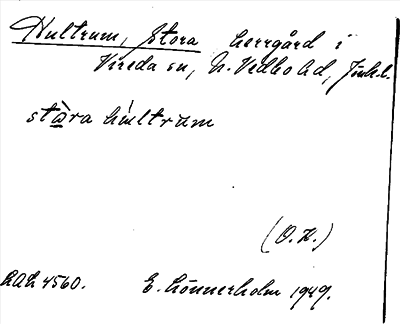 Hultrum, Stora herrgård i
Vireda sn, N. Vedbo hd, Jönk. l.
stàra húltrum
(O.K.)
AAL 4560. E. Lönnerholm 1949.